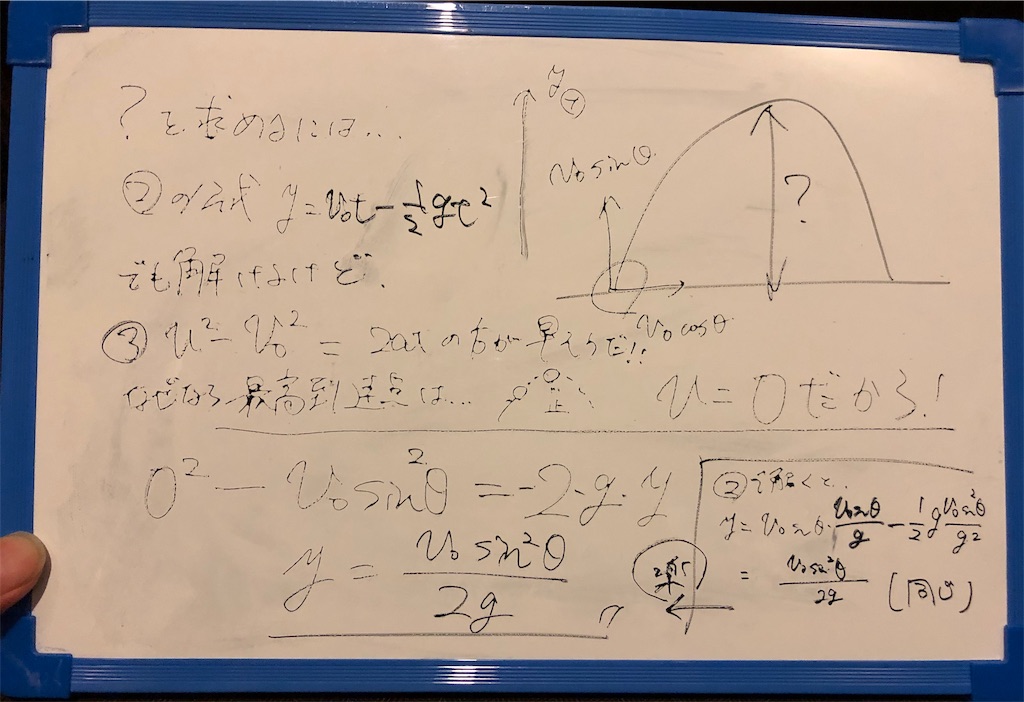 ?を求めるには...
②の公式 y=v₀t-½gt²
でも解けるけど、
③ v²-v₀² = 2axの方が早そうだ!!
なぜなら最高到達点は... v=0だから!
0² - v₀sin²θ = -2・g・y
y = v₀sin²θ/2g
y
+
v₀sinθ
?
v₀cosθ
②で解くと...
y=v₀sinθ・v₀sinθ/g-½g v₀sin²θ/g²
= v₀sin²θ/2g (同じ)